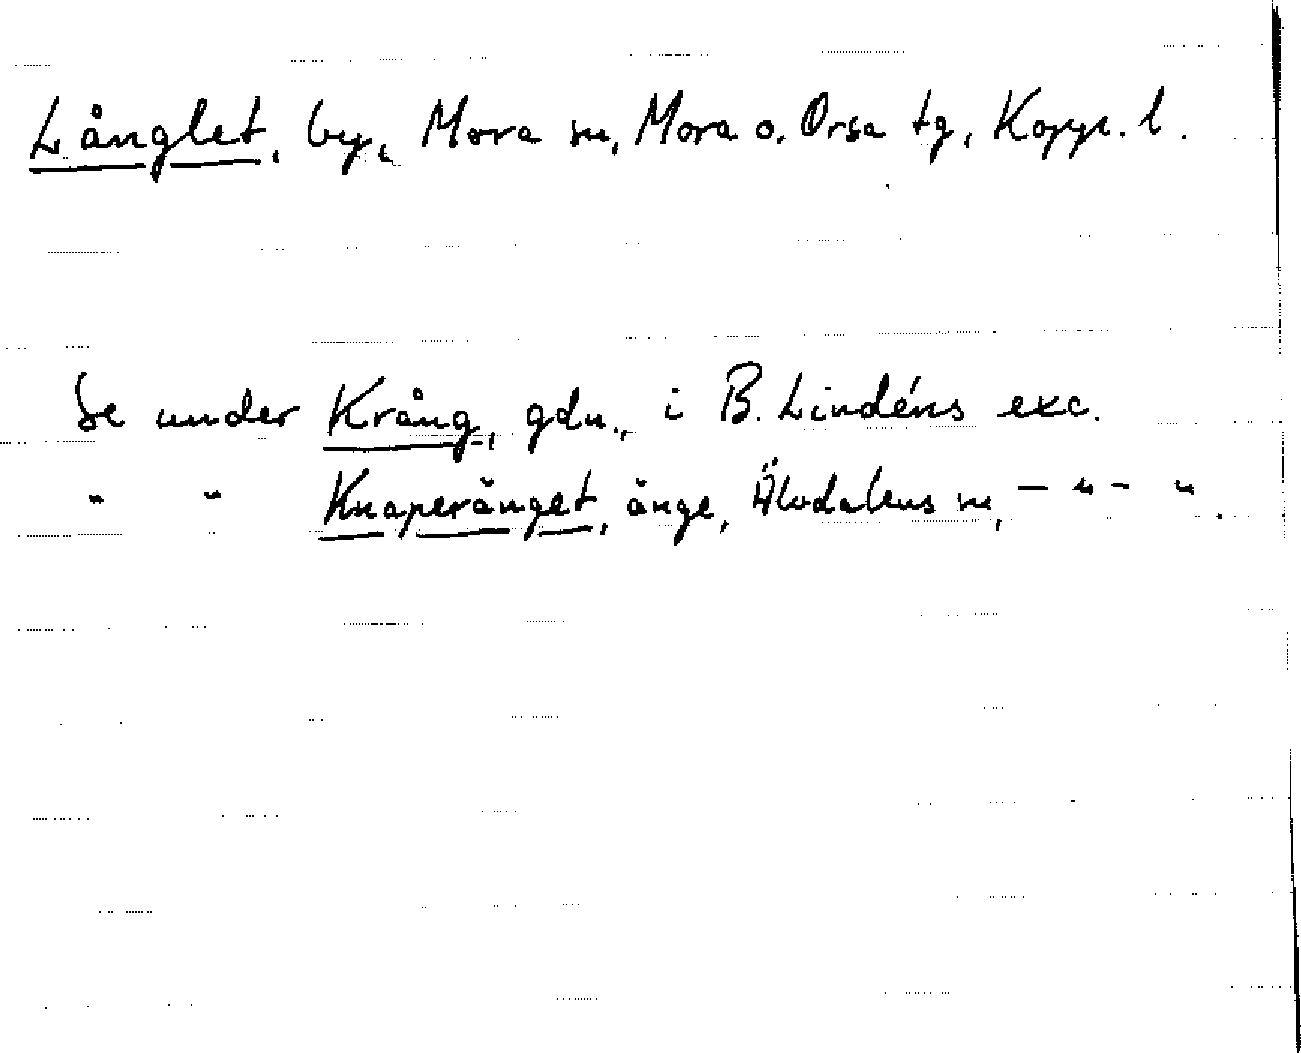 Långlet, by, Mora sn, Mora o. Orsa tg, Kopp. l.
Se under Krång, gdn., i B. Lindéns exc.
" " Knaperänget, änge, Älvdalens sn, - " - ".